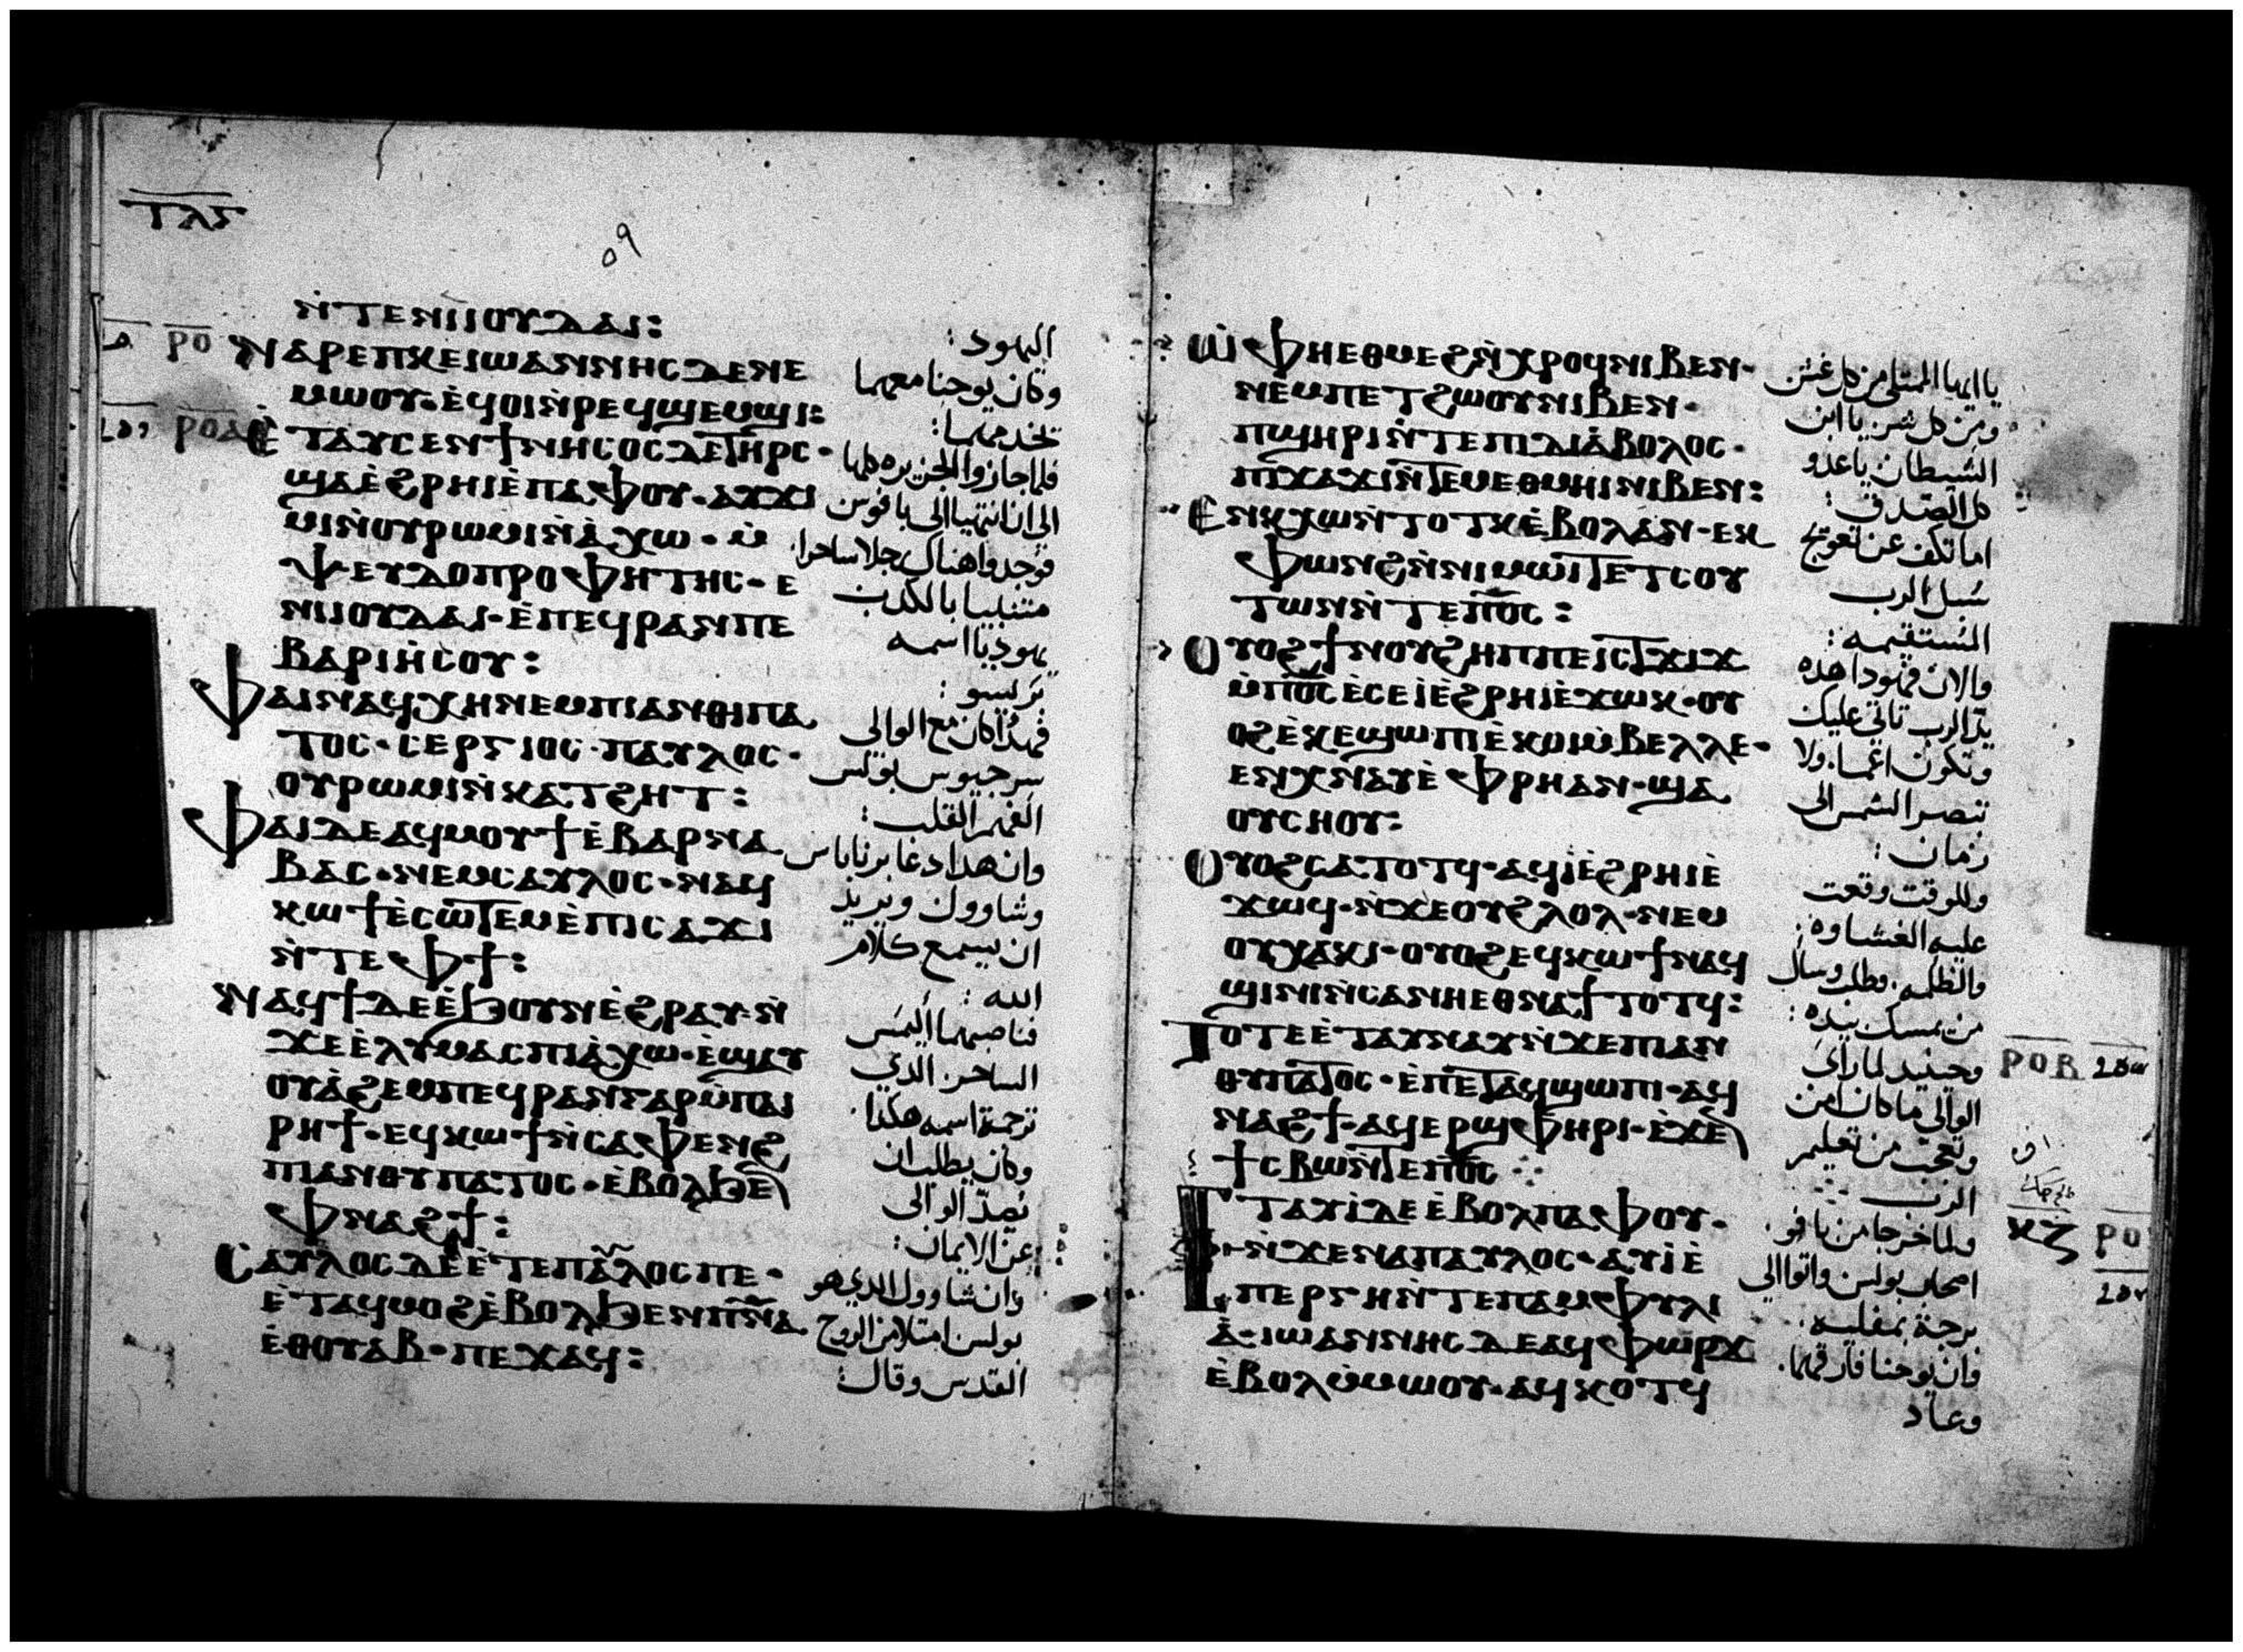 ⲧⲗⲋ
٥٩
ⲛ̀ⲧⲉⲛⲓⲓⲟⲩⲇⲁⲓ:
ⲛⲁⲣⲉⲡⲕⲉⲓⲱⲁⲛⲛⲏⲥ ⲇⲉ ⲛⲉ
ⲙⲱⲟⲩ· ⲉ̀ϥⲟⲓⲛ̀ⲣⲉϥϣⲉⲙϣⲓ:
ⲉ̀ⲧⲁⲩⲥⲉⲛϯⲛⲏⲥⲟⲥ ⲇⲉ ⲧⲏⲣⲥ·
ϣⲁⲉ̀ϩⲣⲏⲓⲉ̀ⲡⲁⲫⲟⲩ· ⲁⲩϫⲓ
ⲙⲓⲛ̀ⲟⲩⲣⲱⲙⲓⲛ̀ⲁ̀ⲭⲱ· ⲙ̀
ⲯⲉⲩⲇⲟⲡⲣⲟⲫⲏⲧⲏⲥ· ⲉ
ⲛⲓⲓⲟⲩⲇⲁⲓ· ⲉ̀ⲡⲉϥⲣⲁⲛⲡⲉ
ⲃⲁⲣⲓⲏ̀ⲥⲟⲩ:
ⲫⲁⲓⲛⲁϥⲭⲏⲛⲉⲙⲡⲓⲁⲛⲑⲓⲡⲁ
ⲧⲟⲥ· ⲥⲉⲣⲅⲓⲟⲥ· ⲡⲁⲩⲗⲟⲥ·
ⲟⲩⲣⲱⲙⲓⲛ̀ⲕⲁⲧϩⲏⲧ:
ⲫⲁⲓⲇⲉⲁϥⲙⲟⲩϯⲉ̀ⲃⲁⲣⲛⲁ
ⲃⲁⲥ· ⲛⲉⲙⲥⲁⲩⲗⲟⲥ· ⲛⲁϥ
ⲕⲱϯⲉ̀ⲥⲱⲧⲉⲙⲉ̀ⲡⲓⲥⲁϫⲓ
ⲛ̀ⲧⲉⲫϯ:
ⲛⲁϥϯⲇⲉⲉ̀ϧⲟⲩⲛⲉ̀ϩⲣⲁⲩ· ⲛ̀
ϫⲉⲉ̀ⲗⲩⲙⲁⲥⲡⲓⲁ̀ⲭⲱ· ⲉ̀ϣⲁⲩ
ⲟⲩⲁ̀ϩⲉⲙⲡⲉϥⲣⲁⲛⲅⲁⲣⲙ̀ⲡⲁⲓ
ⲣⲏϯ· ⲉϥⲕⲱϯⲛ̀ⲥⲁⲫⲉⲛϩ
ⲡⲓⲁⲛⲑⲩⲡⲁⲧⲟⲥ· ⲉ̀ⲃⲟⲗϧⲉ̅
ⲫⲛⲁϩϯ:
ⲥⲁⲩⲗⲟⲥⲇⲉⲉ̀ⲧⲉⲡⲁⲗⲟⲥⲡⲉ·
ⲉ̀ⲧⲁϥⲙⲟϩⲉ̀ⲃⲟⲗϧⲉⲛⲡ̅ⲛ̅ⲁ̅
ⲉ̀ⲑⲟⲩⲁⲃ· ⲡⲉϫⲁϥ:
اليهود:
وكان يوحنا معهما
تخدمهما:
فلما جازوا الجزيره كلها
الى ان انتهيا الى بافوس
فوجدوا هناك رجلا ساحرا
متنبيا بالكدب
يهوديا اسمه
بريسو:
فهدا كان مع الوالى
سرجيوس بولس
الفهم القلب:
وان هدا دعا برنا باس
وشاوول ويريد
ان يسمع كلام
الله:
فناصبهما اليمس
الساحر الدي
ترجمة اسمه هكدا
وكان يطلب ان
يصد الوالى
عن الايمان:
وان شاوول الدي هو
بولس امتلا من الروح
القدس وقال:
ⲱ̀ⲫⲏⲉⲑⲙⲉϩⲛ̀ⲭⲣⲟϥⲛⲓⲃⲉⲛ·
ⲛⲉⲙⲡⲉⲧϩⲱⲟⲩⲛⲓⲃⲉⲛ·
ⲡϣⲏⲣⲓⲛ̀ⲧⲉⲡⲓⲇⲓⲁ̀ⲃⲟⲗⲟⲥ·
ⲡⲓϫⲁϫⲓⲛ̀ⲧⲉⲙⲉⲑⲙⲏⲓⲛⲓⲃⲉⲛ:
ⲉⲛⲕⲭⲱⲛ̀ⲧⲟⲧⲕⲉ̀ⲃⲟⲗⲁⲛ· ⲉⲕ
ⲫⲱⲛϩⲛ̀ⲛⲓⲙⲱⲓⲧⲉⲧⲥⲟⲩ
ⲧⲱⲛⲛ̀ⲧⲉⲡ̅ⲟ̅ⲥ̅:
ⲟⲩⲟϩϯⲛⲟⲩϩⲏⲡⲡⲉⲓⲥⲧϫⲓϫ
ⲙ̀ⲡ̅ⲟ̅ⲥ̅ⲉ̀ⲥⲉⲓⲉ̀ϩⲣⲏⲓⲉ̀ϫⲱⲕ· ⲟⲩ
ⲟϩⲉ̀ⲕⲉϣⲱⲡⲓⲉ̀ⲕⲟⲓⲙ̀ⲃⲉⲗⲗⲉ·
ⲉⲛⲕⲛⲁⲩⲉ̀ⲫⲣⲏⲁⲛ· ϣⲁ
ⲟⲩⲥⲏⲟⲩ:
ⲟⲩⲟϩⲥⲁⲧⲟⲧϥ· ⲁϥⲓ̀ⲉ̀ϩⲣⲏⲓⲉ̀
ϫⲱϥ· ⲛ̀ϫⲉⲟⲩϩⲗⲟⲗ· ⲛⲉⲙ
ⲟⲩⲭⲁⲕⲓ· ⲟⲩⲟϩⲉϥⲕⲱϯⲛⲁϥ
ϣⲓⲛⲓⲛ̀ⲥⲁⲛⲏⲉⲑⲛⲁϯⲧⲟⲧϥ:
ⲧⲟⲧⲉⲉ̀ⲧⲁⲩⲛⲁⲩⲛ̀ϫⲉⲡⲓⲁⲛ
ⲑⲩⲡⲁⲧⲟⲥ· ⲉ̀ⲡⲉⲧⲁϥϣⲱⲡⲓ· ⲁϥ
ⲛⲁϩϯ· ⲁϥⲉⲣϣⲫⲏⲣⲓ· ⲉ̀ϫⲉ̅
ϯⲥⲃⲱⲛ̀ⲧⲉⲡ̅ⲟ̅ⲥ̅
ⲉⲧⲁⲩⲓ̀ⲇⲉⲉ̀ⲃⲟⲗⲡⲁⲫⲟⲩ·
ⲛ̀ϫⲉⲛⲁⲡⲁⲩⲗⲟⲥ· ⲁⲩⲓ̀ⲉ̀
ⲡⲉⲣⲅⲏⲛ̀ⲧⲉⲡⲁⲙⲫⲩⲗⲓ
ⲁ̀· ⲓⲱⲁⲛⲛⲏⲥⲇⲉⲁϥⲫⲱⲣϫ
ⲉ̀ⲃⲟⲗⲙ̀ⲙⲱⲟⲩ· ⲁϥⲕⲟⲧϥ
يا ايها الممتلى من كل غش
ومن كل شر يا ابن
الشيطان يا عدو
كل الصدق:
اما تكف عن تعويج
سبل الرب
المستقيمه:
والان فهودا هده
يد الرب تاتى عليك
وتكون اعما ولا
تبصر الشمس الى
زمان:
وللوقت وقعت
عليه الغشاوه:
والظلمه وطلب وسال
من يمسك بيده:
وحينيد لما راى
الوالى ما كان امن
وتعجب من تعليم
الرب
ولما خرجا من بافو
اصحاب بولس واتوا الى
برجة بمفليه
وان يوحنا فارقهما
وعاد
ⲣⲟⲃ
ⲕⲍ
ⲣⲟ